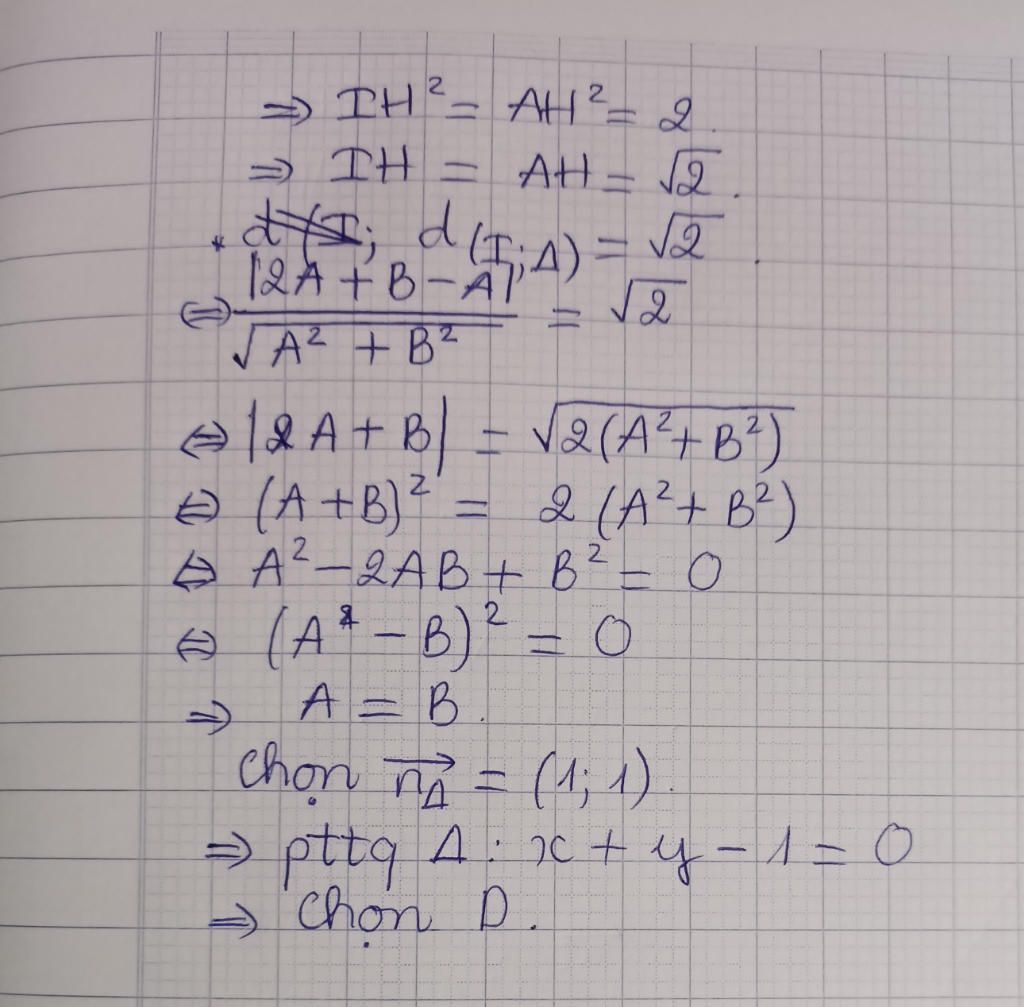 ⇒ IH² = AH² = 2.
⇒ IH = AH = √2.
* d(I; d(I;Δ) = √2.
⇔ |2A + B - A| / √(A² + B²) = √2
⇔ |2A + B| = √(2(A² + B²))
⇔ (A + B)² = 2(A² + B²)
⇔ A² - 2AB + B² = 0
⇔ (A² - B)² = 0
⇒ A = B.
Chọn n⃗_Δ = (1; 1).
⇒ pttq Δ: x + y - 1 = 0
⇒ Chọn D.